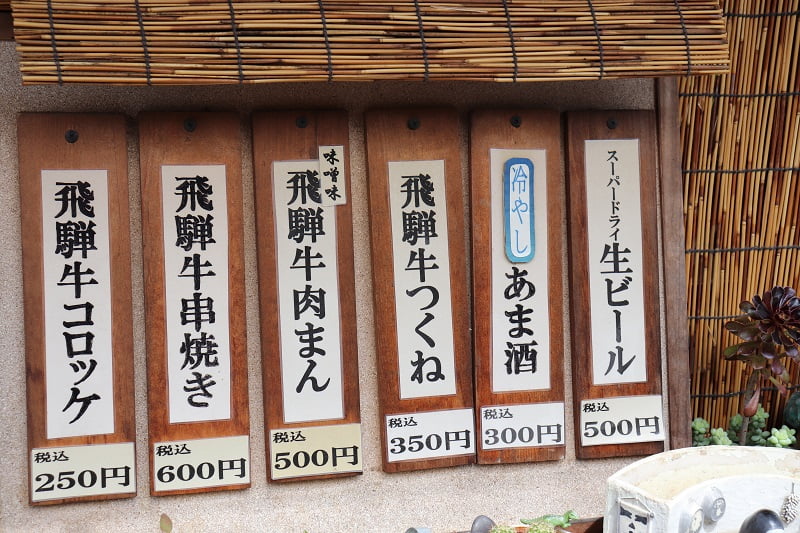 飛騨牛コロッケ
税込
250円
飛騨牛串焼き
税込
600円
味噌味
飛騨牛肉まん
税込
500円
飛騨牛つくね
税込
350円
冷やし
あま酒
税込
300円
スーパードライ
生ビール
税込
500円